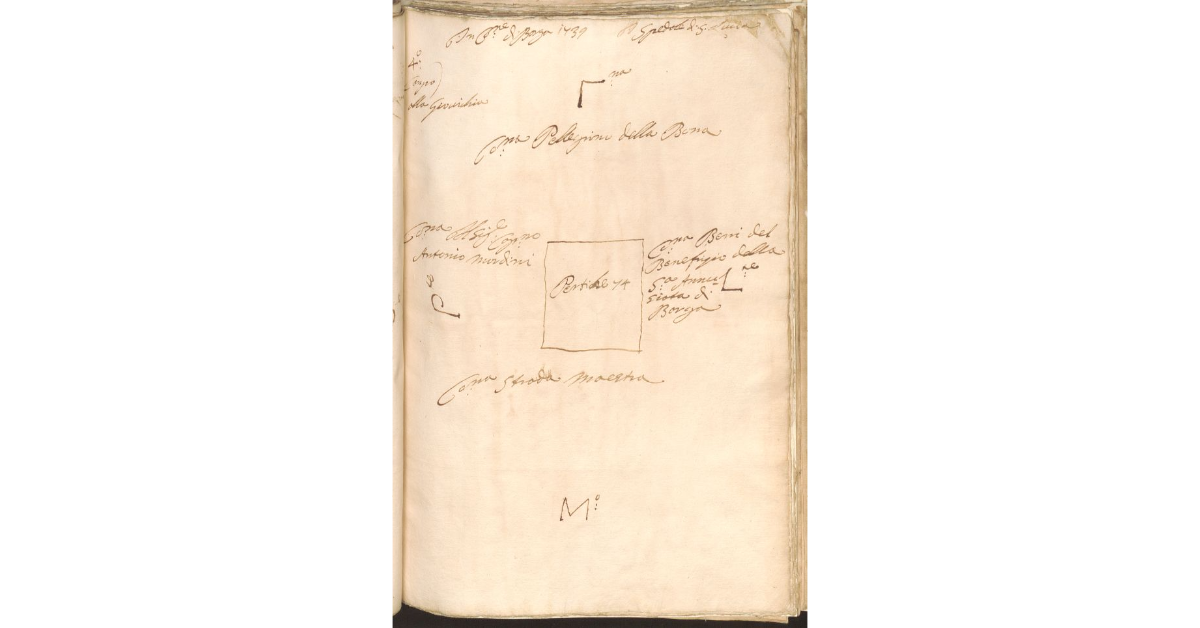 In C:ne di Borga 1739
Spedale di S. Lucia
4:o
Campo
alla Giovichia
T:na
Co:na Pellegrini della Bena
Co:na del Sig:e Cap:no
Antonio Mordini
P:e
Pertiche 74
Co:na Beni del
Benefizio della
S:a Annu=
siata di
Borga
L:ne
Co:na Strada Maestra
M:o